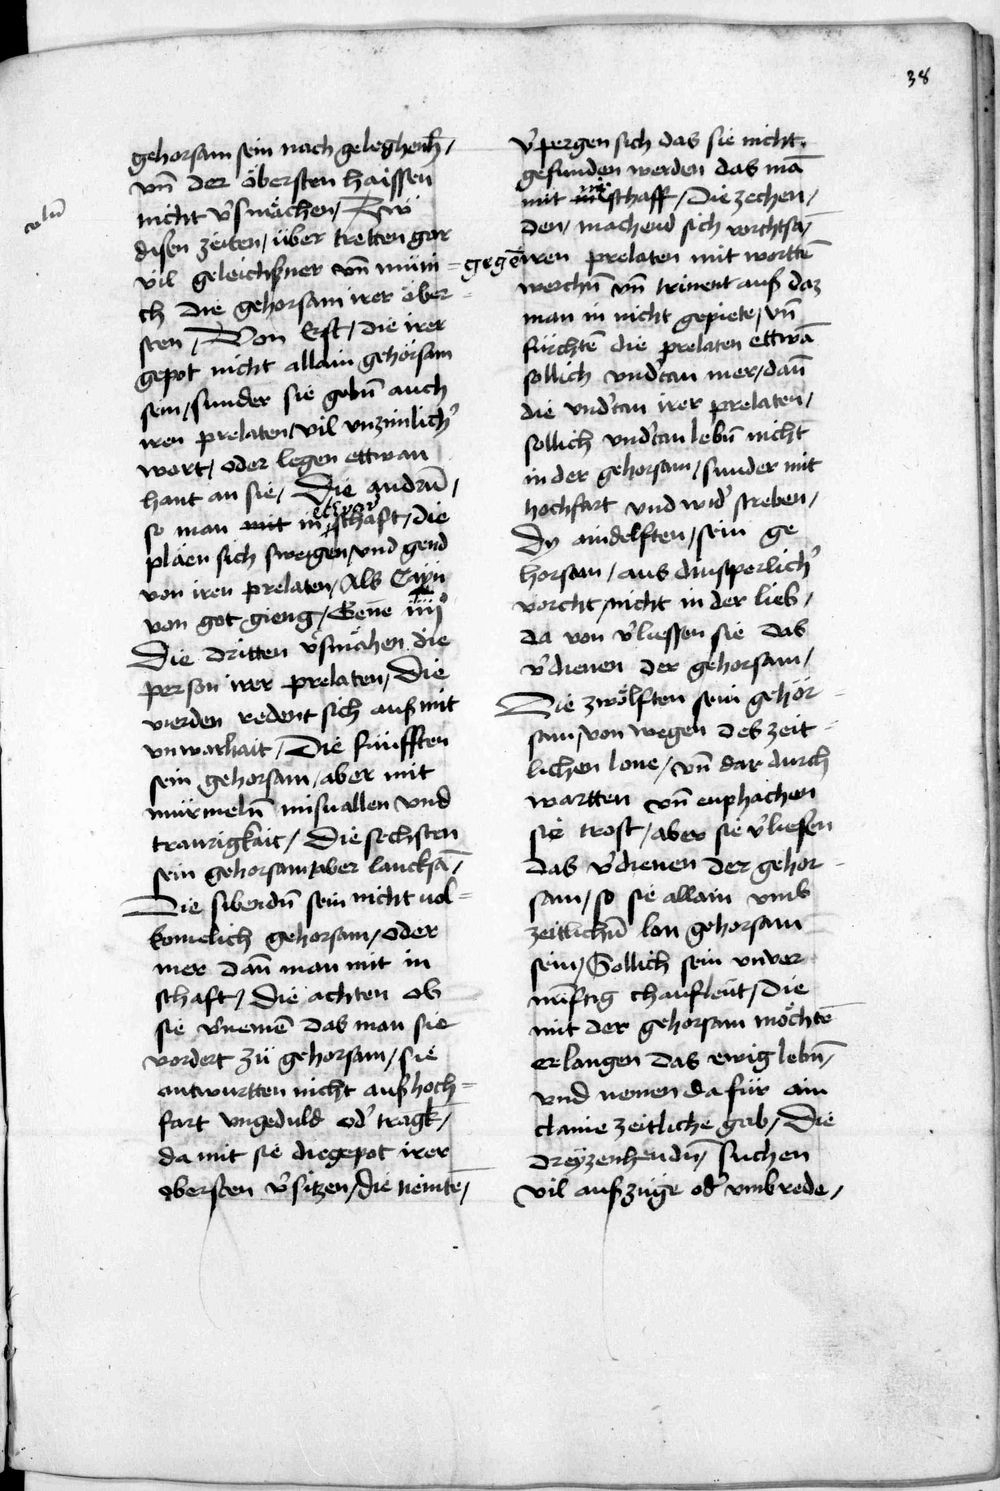 38
gehorsam sein nach geleghenh̄,
vn̄ der öbersten haissen
nicht v̓smächen, Zw̄
disen zeiten, über tretten gar
vil geleichsner vn̄ müni=
ch die gehorsam irer öber=
sten, Von Erst, die irer
gepot nicht allain gehörsam
sein, sunder sie gebn̄ auch
iren prelaten, vil vnzimlich̓
wort, oder legen ettwan
hant an sie, Die andrn̄,
so man mit in schaft, die
pläen sich sweigen, vnd gend
von iren prelaten, Als Cayn
von got gieng, Gene iiij°
Die dritten v̓smächen die
person irer prelaten, Die
vierden redent sich aus mit
vnwarhait, Die fünfften
sein gehorsam, aber mit
mürmeln̄ misuallen vnd
traurigkait, Die sechsten
sein gehorsam, aber lancksā,
Die sibendn̄ sein nicht vol=
komelich gehorsam, oder
mer dan̄ man mit in
schaft, Die achten ob
sie v̓nemen̄ das man sie
vordert zü gehorsam, sie
antwurtten nicht aus hoch=
fart vngeduld od̓ tragk̄,
da mit sie die gepot irer
obersten v̓sitzen, die neintē,
v̓pergen sich das sie nicht
gefunden werden das mā
mit in schaff, Die zechen,
den, machend sich vorchtsā,
gegē iren prelaten mit worttē
werchn̄ vn̄ trinent auf daz
man in nicht gepiete, vn̄
fürchtē die prelaten ettwā
sollich vnd̓tan mer, dan̄
die vnd̓tan irer prelaten,
sollich vnd̓tan lebn̄ nicht
in der gehorsam, sunder mit
hochfart vnd wid̓ streben,
Dy aindelften, sein ge
horsam, aus dinstperlich̓
vorcht, nicht in der lieb,
da von v̓liessen sie das
v̓dienen der gehorsam,
Die zwölften sein gehör=
sam, von wegen des zeit=
lichen lone, vn̄ dar durch
wartten vn̄ enphachen
sie trost, aber sie v̓liesen
das v̓dienen der gehor=
sam, so sie allain vmb
zeitlichn̄ lon gehorsam
sein, Sollich sein vnver
nūftig chaufleüt, die
mit der gehorsam möchtē
erlangen das ewig lebn̄,
vnd nemen da für ain
claine zeitliche gab, Die
dreyzenhendn̄, suchen
vil aufzüge od̓ vmbrede,